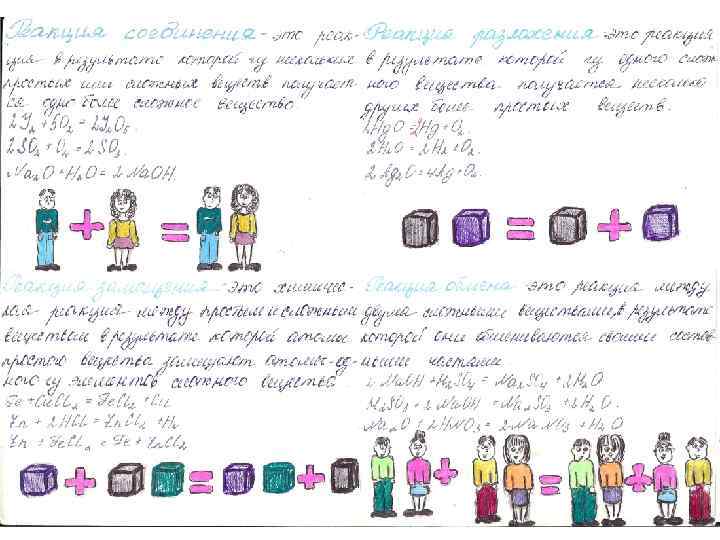 Реакция соединения - это реак-
ция в результате которой из нескольких
простых или сложных веществ получает-
ся одно более сложное вещество
2I₂ + 5O₂ = 2I₂O₅.
2SO₂ + O₂ = 2SO₃.
Na₂O + H₂O = 2NaOH.
Реакция разложения это реакция
в результате которой из одного слож-
ного вещества получается несколько
других более простых веществ.
2HgO = 2Hg + O₂.
2H₂O = 2H₂ + O₂.
2Ag₂O = 4Ag + O₂.
+ =
= +
Реакция замещения - это химичес-
кая реакция между простым и сложным
веществом в результате которой атомы
простого вещества замещают атомы од-
ного из элементов сложного вещества.
Fe + CuCl₂ = FeCl₂ + Cu
Zn + 2HCl = ZnCl₂ + H₂
Zn + FeCl₂ = Fe + ZnCl₂
Реакция обмена это реакция между
двумя сложными веществами, в результате
которой они обмениваются своими состав-
ными частями.
2NaOH + H₂SO₄ = Na₂SO₄ + 2H₂O
+ 2NaOH = Na₂SO₃ + 2H₂O.
Na₂O + 2HNO₃ = 2NaNO₃ + H₂O
+ = +
+ = +